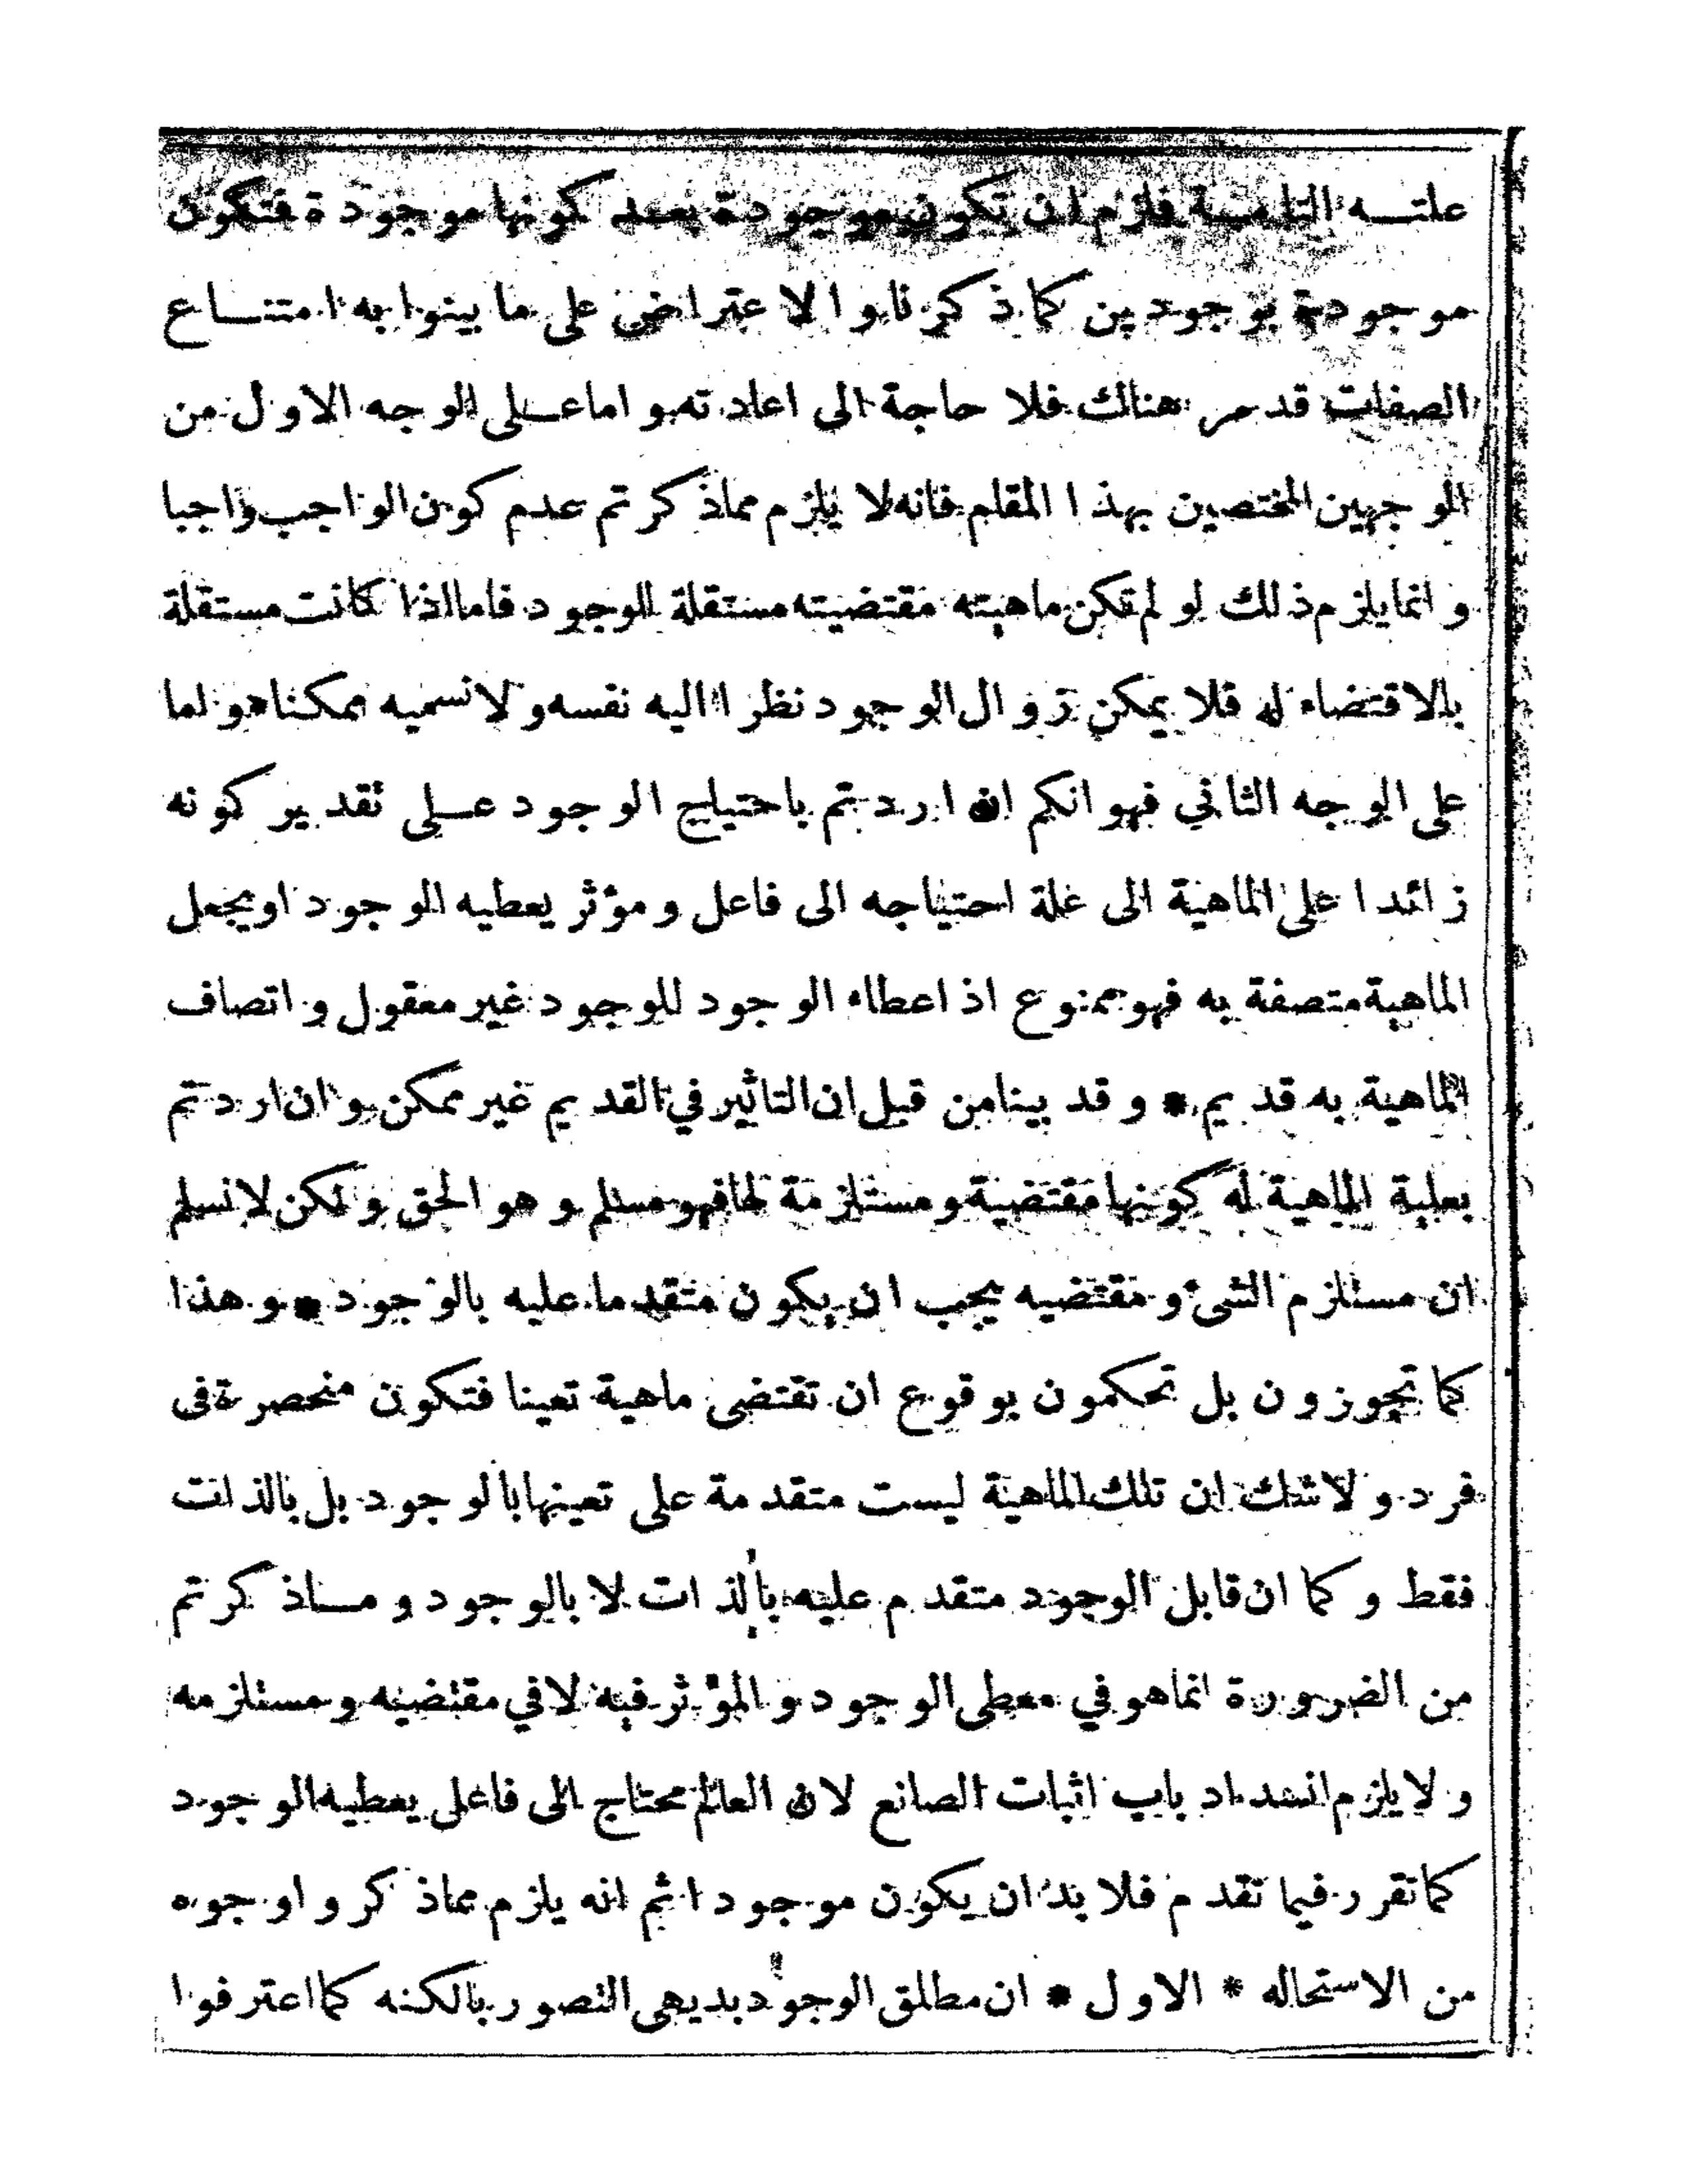 علتــه التامــة فلزم ان تكون موجودة بعــد كونها موجودة فتكون
موجودة بوجودين كما ذكرنا و الاعتراض على ما بينوا به امتنــاع
الصفات قد مر هنالك فلا حاجة الى اعادته و اما عــلى الوجه الاول من
الوجهين المختصين بهذا المقام فانه لا يلزم مما ذكرتم عدم كون الواجب واجبا
و انما يلزم ذلك لو لم تكن ماهيته مقتضيته مستقلة الوجود فاما اذا كانت مستقلة
بالاقتضاء له فلا يمكن زوال الوجود نظرا اليه نفسه و لا نسميه ممكنا و اما
على الوجه الثاني فهو انكم ان اردتم باحتياج الوجود عــلى تقدير كونه
زائدا على الماهية الى علة احتياجه الى فاعل و مؤثر يعطيه الوجود او يجعل
الماهية متصفة به فهو ممنوع اذ اعطاء الوجود للوجود غير معقول و اتصاف
الماهية به قديم * و قد بينا من قبل ان التاثير في القديم غير ممكن و ان اردتم
بعلية الماهية له كونها مقتضية و مستلزمة لها فهو مسلم و هو الحق و لكن لا نسلم
ان مستلزم الشئ و مقتضيه يجب ان يكون متقدما عليه بالوجود * و هذا
كما تجوزون بل تحكمون بوقوع ان تقتضى ماهية تعينا فتكون منحصرة فى
فرد و لا شك ان تلك الماهية ليست متقدمة على تعينها بالوجود بل بالذات
فقط و كما ان قابل الوجود متقدم عليه بالذات لا بالوجود و مــا ذكرتم
من الضرورة انما هو في معطى الوجود و المؤثر فيه لا في مقتضيه و مستلزمه
و لا يلزم انسداد باب اثبات الصانع لان العالم محتاج الى فاعل يعطيه الوجود
كما تقرر فيما تقدم فلا بد ان يكون موجودا ثم انه يلزم مما ذكروا وجوه
من الاستحاله * الاول * ان مطلق الوجود بديهى التصور بالكنه كما اعترفوا